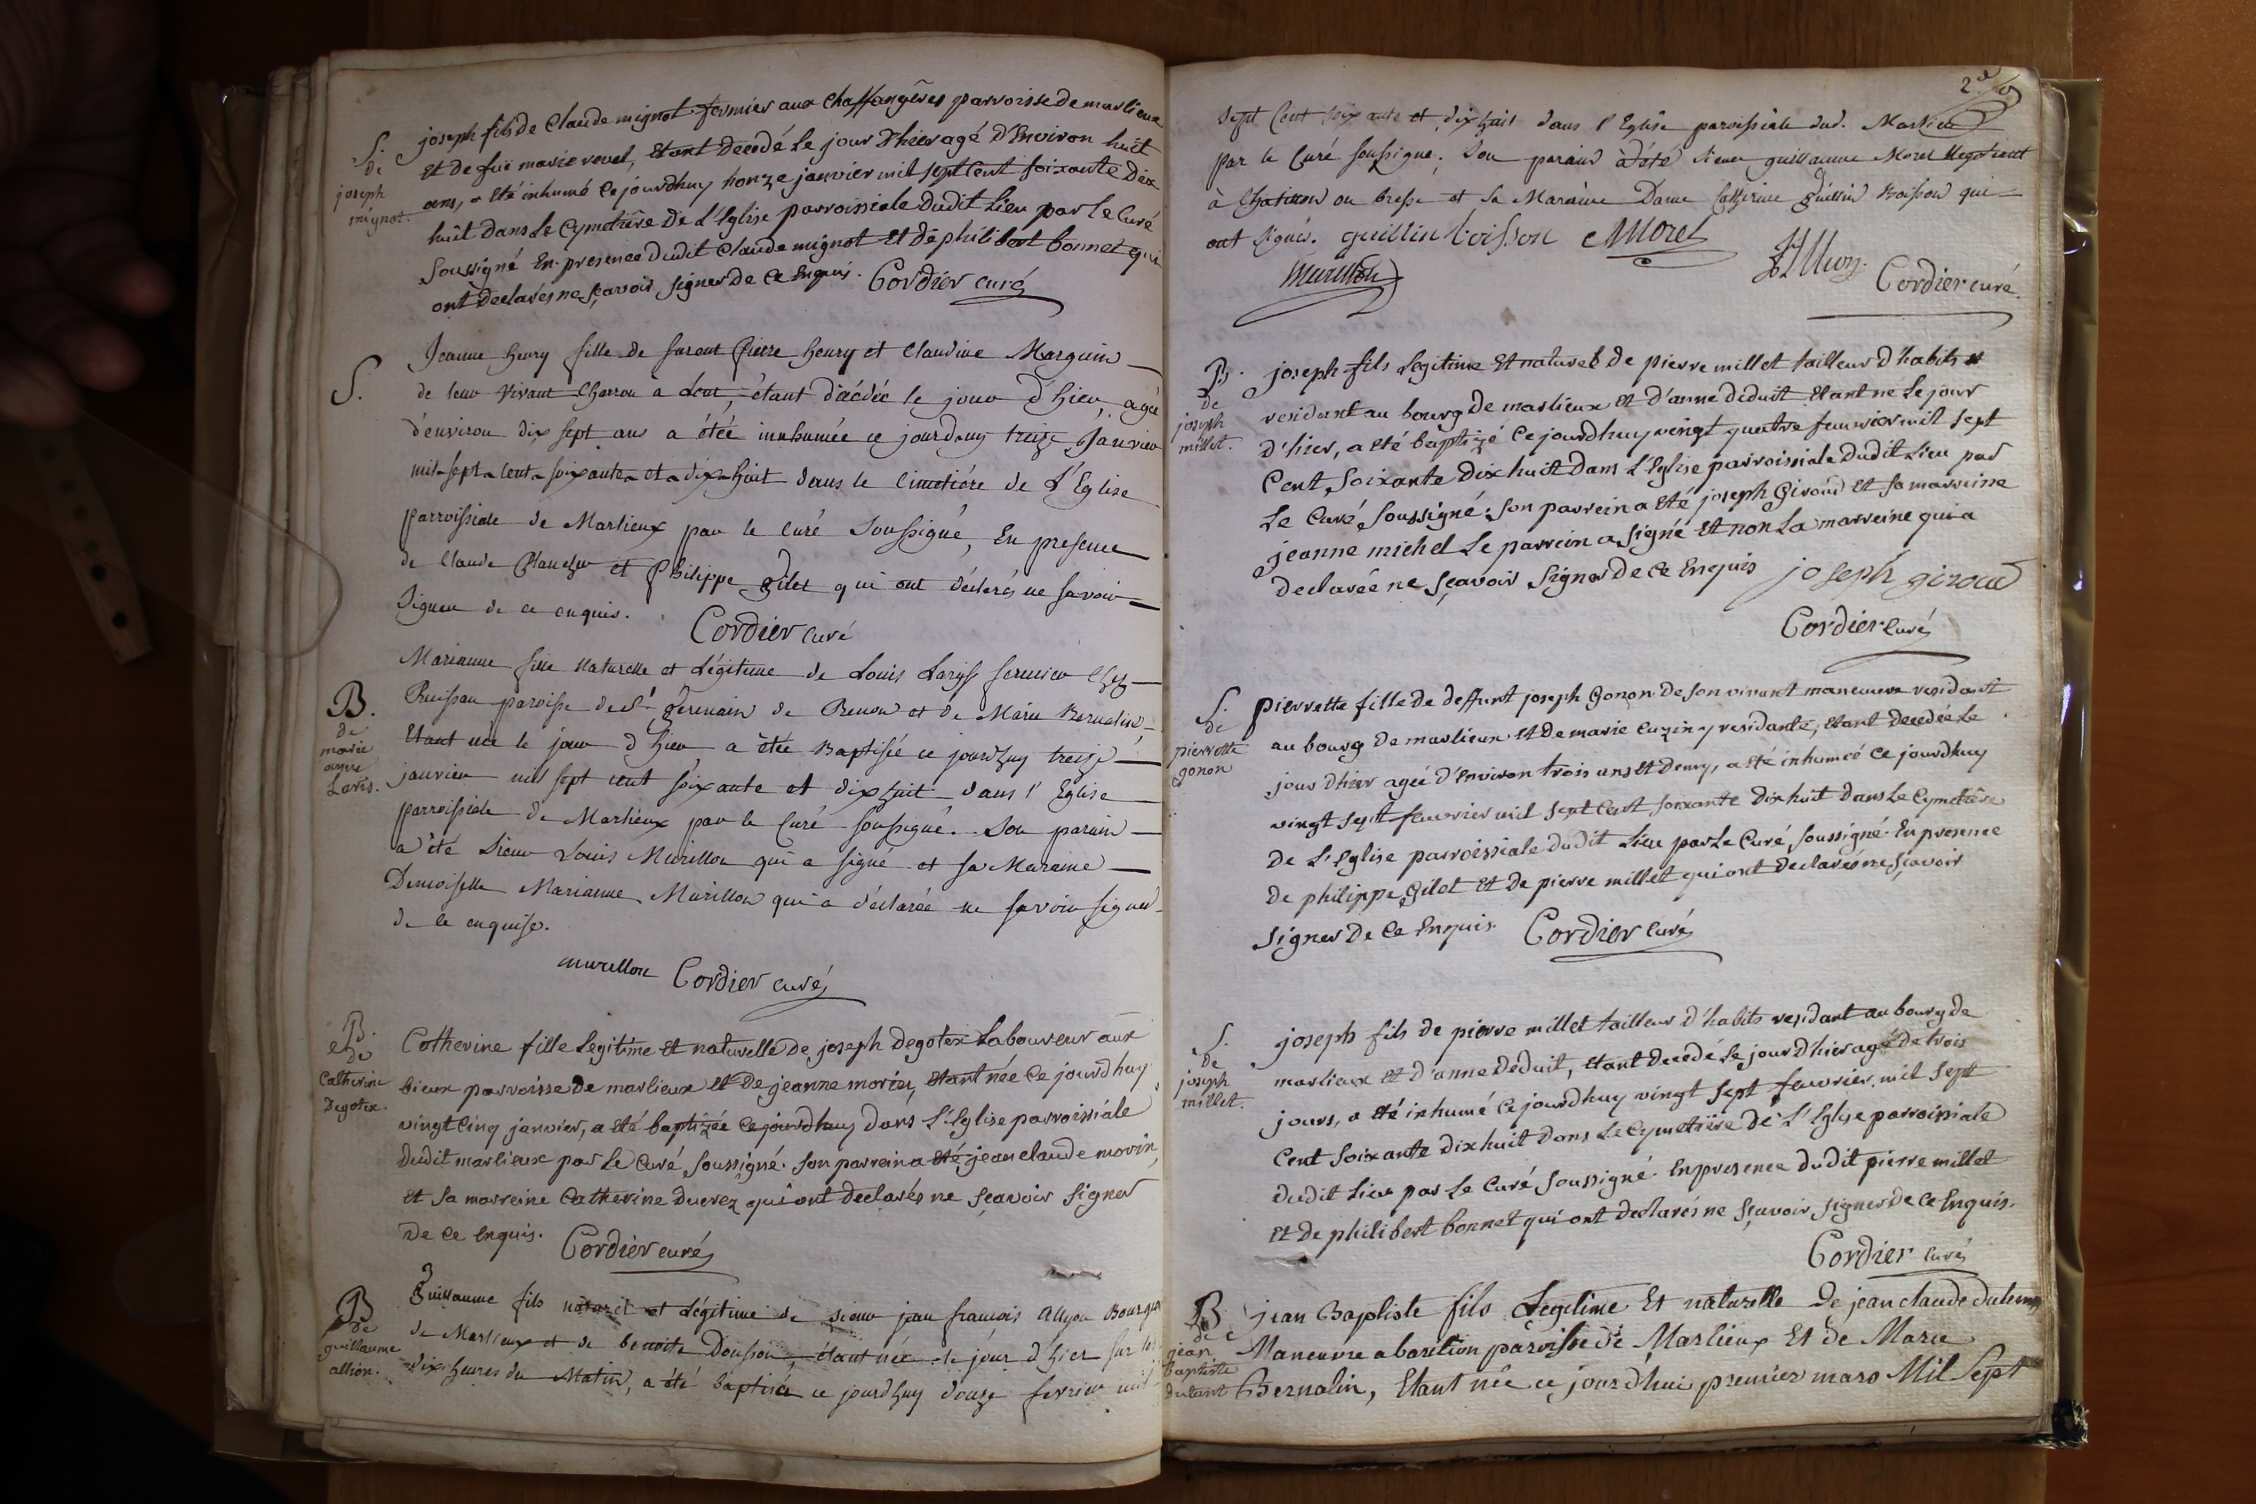 S.
de
joseph
mignot.
joseph fils de Claude mignot fermier aux Chaffangêres parroisse de marlieux
Et de fue marie revel, Etant decedé Le jour d'hier agé d'Environ huit
ans, a Eté inhumé Ce jourdhuy honze janvier mil sept Cent soixante Dix
huit Dans Le Cymetiêre De L'Eglise parroissiale Dudit Lieu par Le Curé
Soussigné En presence Dudit Claude mignot Et de philibert bonnet qui
ont declarés ne sçavoir signer de Ce Enquis. Cordier curé
S.
Jeanne henry fille de furent Pierre henry et Claudine Marguin
de leur vivant Charron a étant décédée le jour d'hier, agée
d'environ dix sept ans a étée innhumée ce jourdhuy treize Janvier
mil sept cent soixante et dix huit dans le cimetiére de L'Eglise
parroissiale de Marlieux par le Curé soussigné, En presence
de Claude et Philippe Gilet qui ont déclarés ne savoir
signer de ce enquis. Cordier curé
B.
de
marie
anne
Laris.
Marianne fille naturelle et Légitime de Louis fermier chez
Ruissau paroisse de St germain de Renon et de Marie Bernalin,
Etant née le jour d'hier a étée Baptisée ce jourdhuy treize
janvier mil sept cent soixante et dix huit dans l'Eglise
parroissiale de Marlieux par le Curé soussigné. Son parain
a été Sieur Louis Murillon qui a signé et sa Maraine
Demoiselle Marianne Murillon qui a déclarée ne savoir signer
de ce enquise.
murillon Cordier curé
B.
de
Catherine
Degotex.
Catherine fille Legitime Et naturelle De joseph Degotex Laboureur aux
bieux parroisse de marlieux Et De jeanne morin, Etant née Ce jourdhuy
vingt Cinq janvier, a Eté baptizée Ce jourdhuy dans L'Eglise parroissiale
Dudit marlieux par Le Curé Soussigné. Son parrein a Eté jean claude morin,
Et Sa marreine Catherine Ducrez qui ont declarés ne sçavoir signer
De Ce Enquis. Cordier curé
B
de
guillaume
allion.
Guillaume fils naturel et Légitime de sieur jean françois Allyon Bourgeois
de Marlieux et de benoite Donsson, étant née le jour d'hier sur les
dix heures du Matin, a été baptisée ce jourdhuy douze fevrier mil
2e
sept Cent soixante et dix huit dans l'Eglise paroissiale dud. Marlieu
par le Curé soussigné. Son parain a été Sieur guillaume Morel Negotient
à Chatillon en bresse et sa Maraine Dame Catherine Guillin Boisson qui
ont signés. guillin boisson Morel
murillon Cordier curé.
B.
de
joseph
millet.
joseph fils Legitime Et naturel de pierre millet tailleur d'habits
residant au bourg De marlieux Et D'anne Deduit Etant né Le jour
d'hier, a Eté baptizé Ce jourdhuy vingt quatre feuvrier mil sept
Cent Soixante Dix huit Dans L'Eglise parroissiale Dudit Lieu par
Le Curé Soussigné. Son parrein a Eté joseph Giroud Et Sa marreine
jeanne michel Le parrein a signé Et non La marreine qui a
declarée ne sçavoir signer De Ce Enquis joseph giroud
Cordier Curé
S.
de
pierrette
gonon
pierrette fille De deffunt joseph Gonon De son vivant maneuvre residant
au bourg De marlieux Et De marie Cuziny residante, Etant Decedée Le
jour d'hier agée d'Environ trois ans Et Demy, a Eté inhumée Ce jourdhuy
vingt sept feuvrier mil sept Cent soixante Dix huit Dans Le Cymetiêre
De L'Eglise parroissiale Dudit Lieu par Le Curé Soussigné. En presence
De philippe Gilet Et De pierre millet qui ont declarés ne sçavoir
signer De Ce Enquis. Cordier Curé
S.
de
joseph
millet.
joseph fils de pierre millet tailleur d'habits residant au bourg de
marlieux Et D'anne Deduit, Etant Decedé Le jour d'hier agé De trois
jours, a Eté inhumé Ce jourdhuy vingt sept feuvrier mil sept
Cent Soixante Dix huit Dans Le Cymetiêre De L'Eglise parroissiale
Dudit Lieu par Le Curé Soussigné. En presence Dudit pierre millet
Et De philibert bonnet qui ont declarés ne sçavoir signer De Ce Enquis.
Cordier Curé
B
de
jean
baptiste
jean Baptiste fils Legitime Et naturelle De jean claude
Maneuvre a paroisse de Marlieux Et de Marie
Bernalin, Etant née ce jour d'hui premier mars Mil Sept